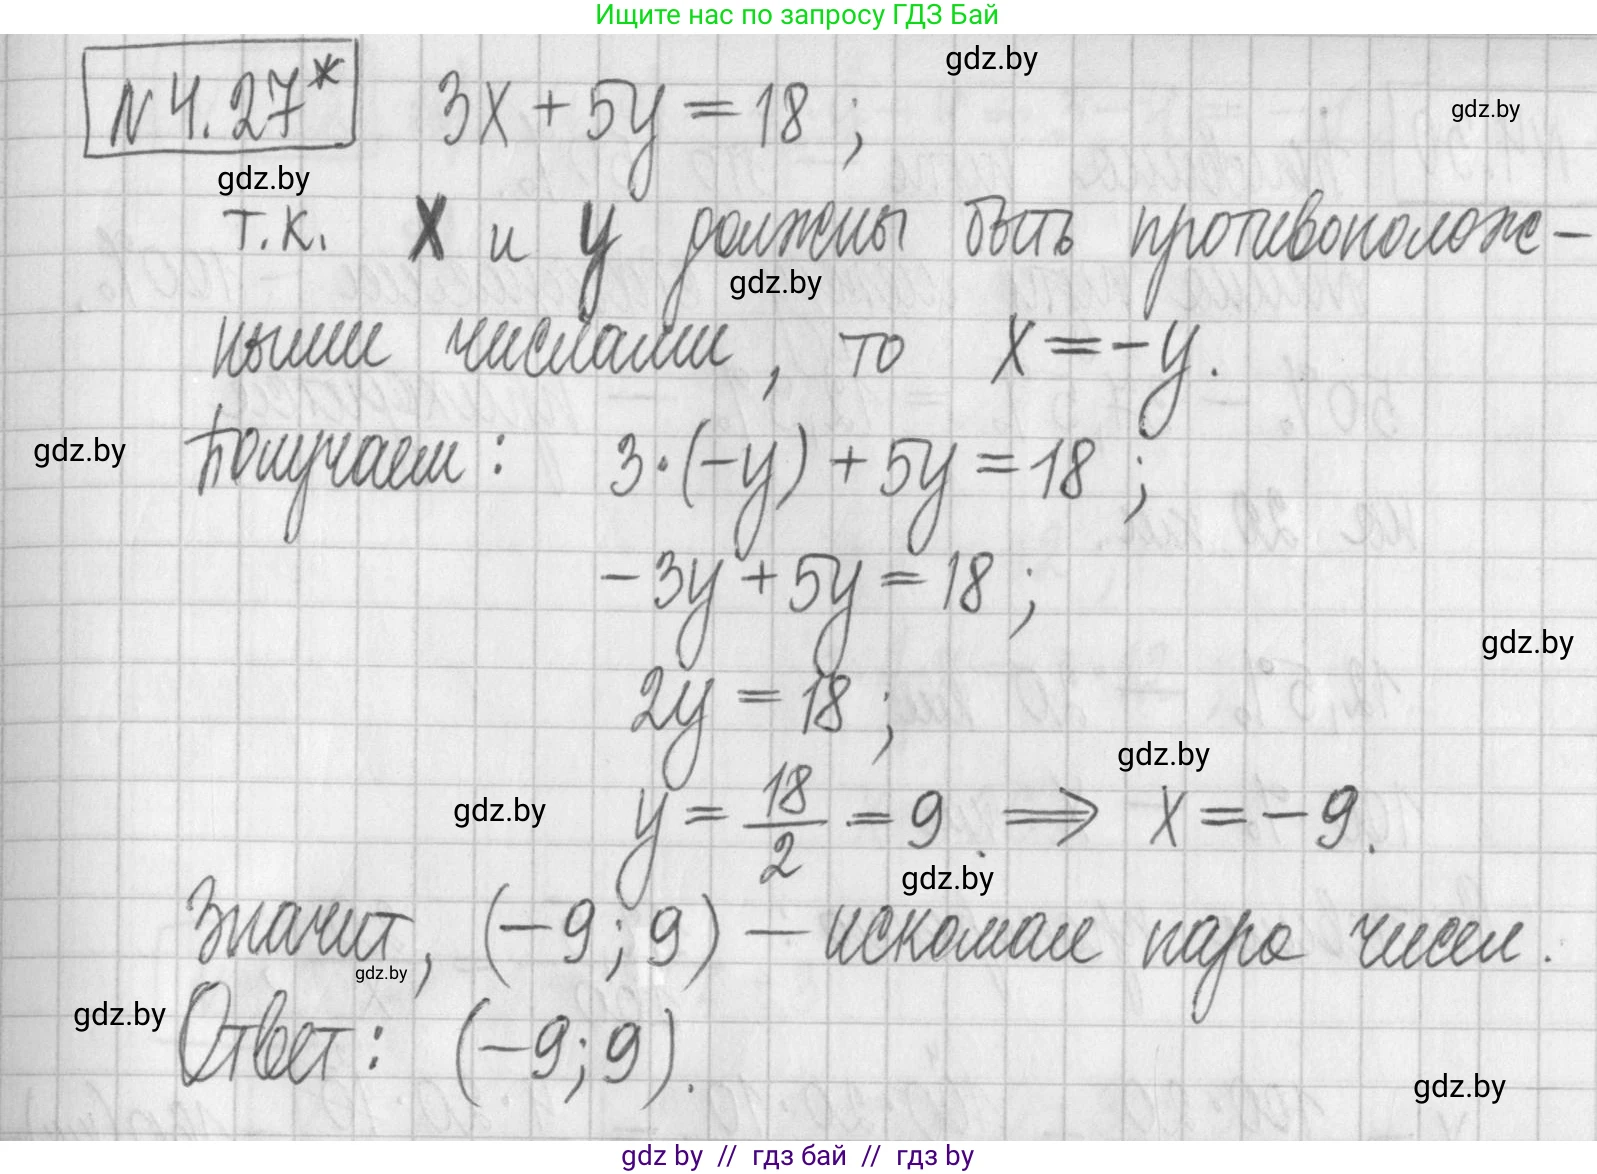 Ищите нас по запросу ГДЗ Бай
gdz.by
N 4.27* 3x + 5y = 18 ;
gdz.by
gdz.by
т.к. x и y должны быть противополож-
gdz.by
ными числами, то x = -y.
gdz.by
Получаем : 3·(-y) + 5y = 18 ;
-3y + 5y = 18 ;
gdz.by
2y = 18 ;
gdz.by
gdz.by
y = 18/2 = 9. ⟹ x = -9.
gdz.by
Значит, (-9; 9) — искомая пара чисел.
gdz.by
gdz.by
Ответ: (-9; 9).
gdz.by
gdz by // гдз бай // гдз by